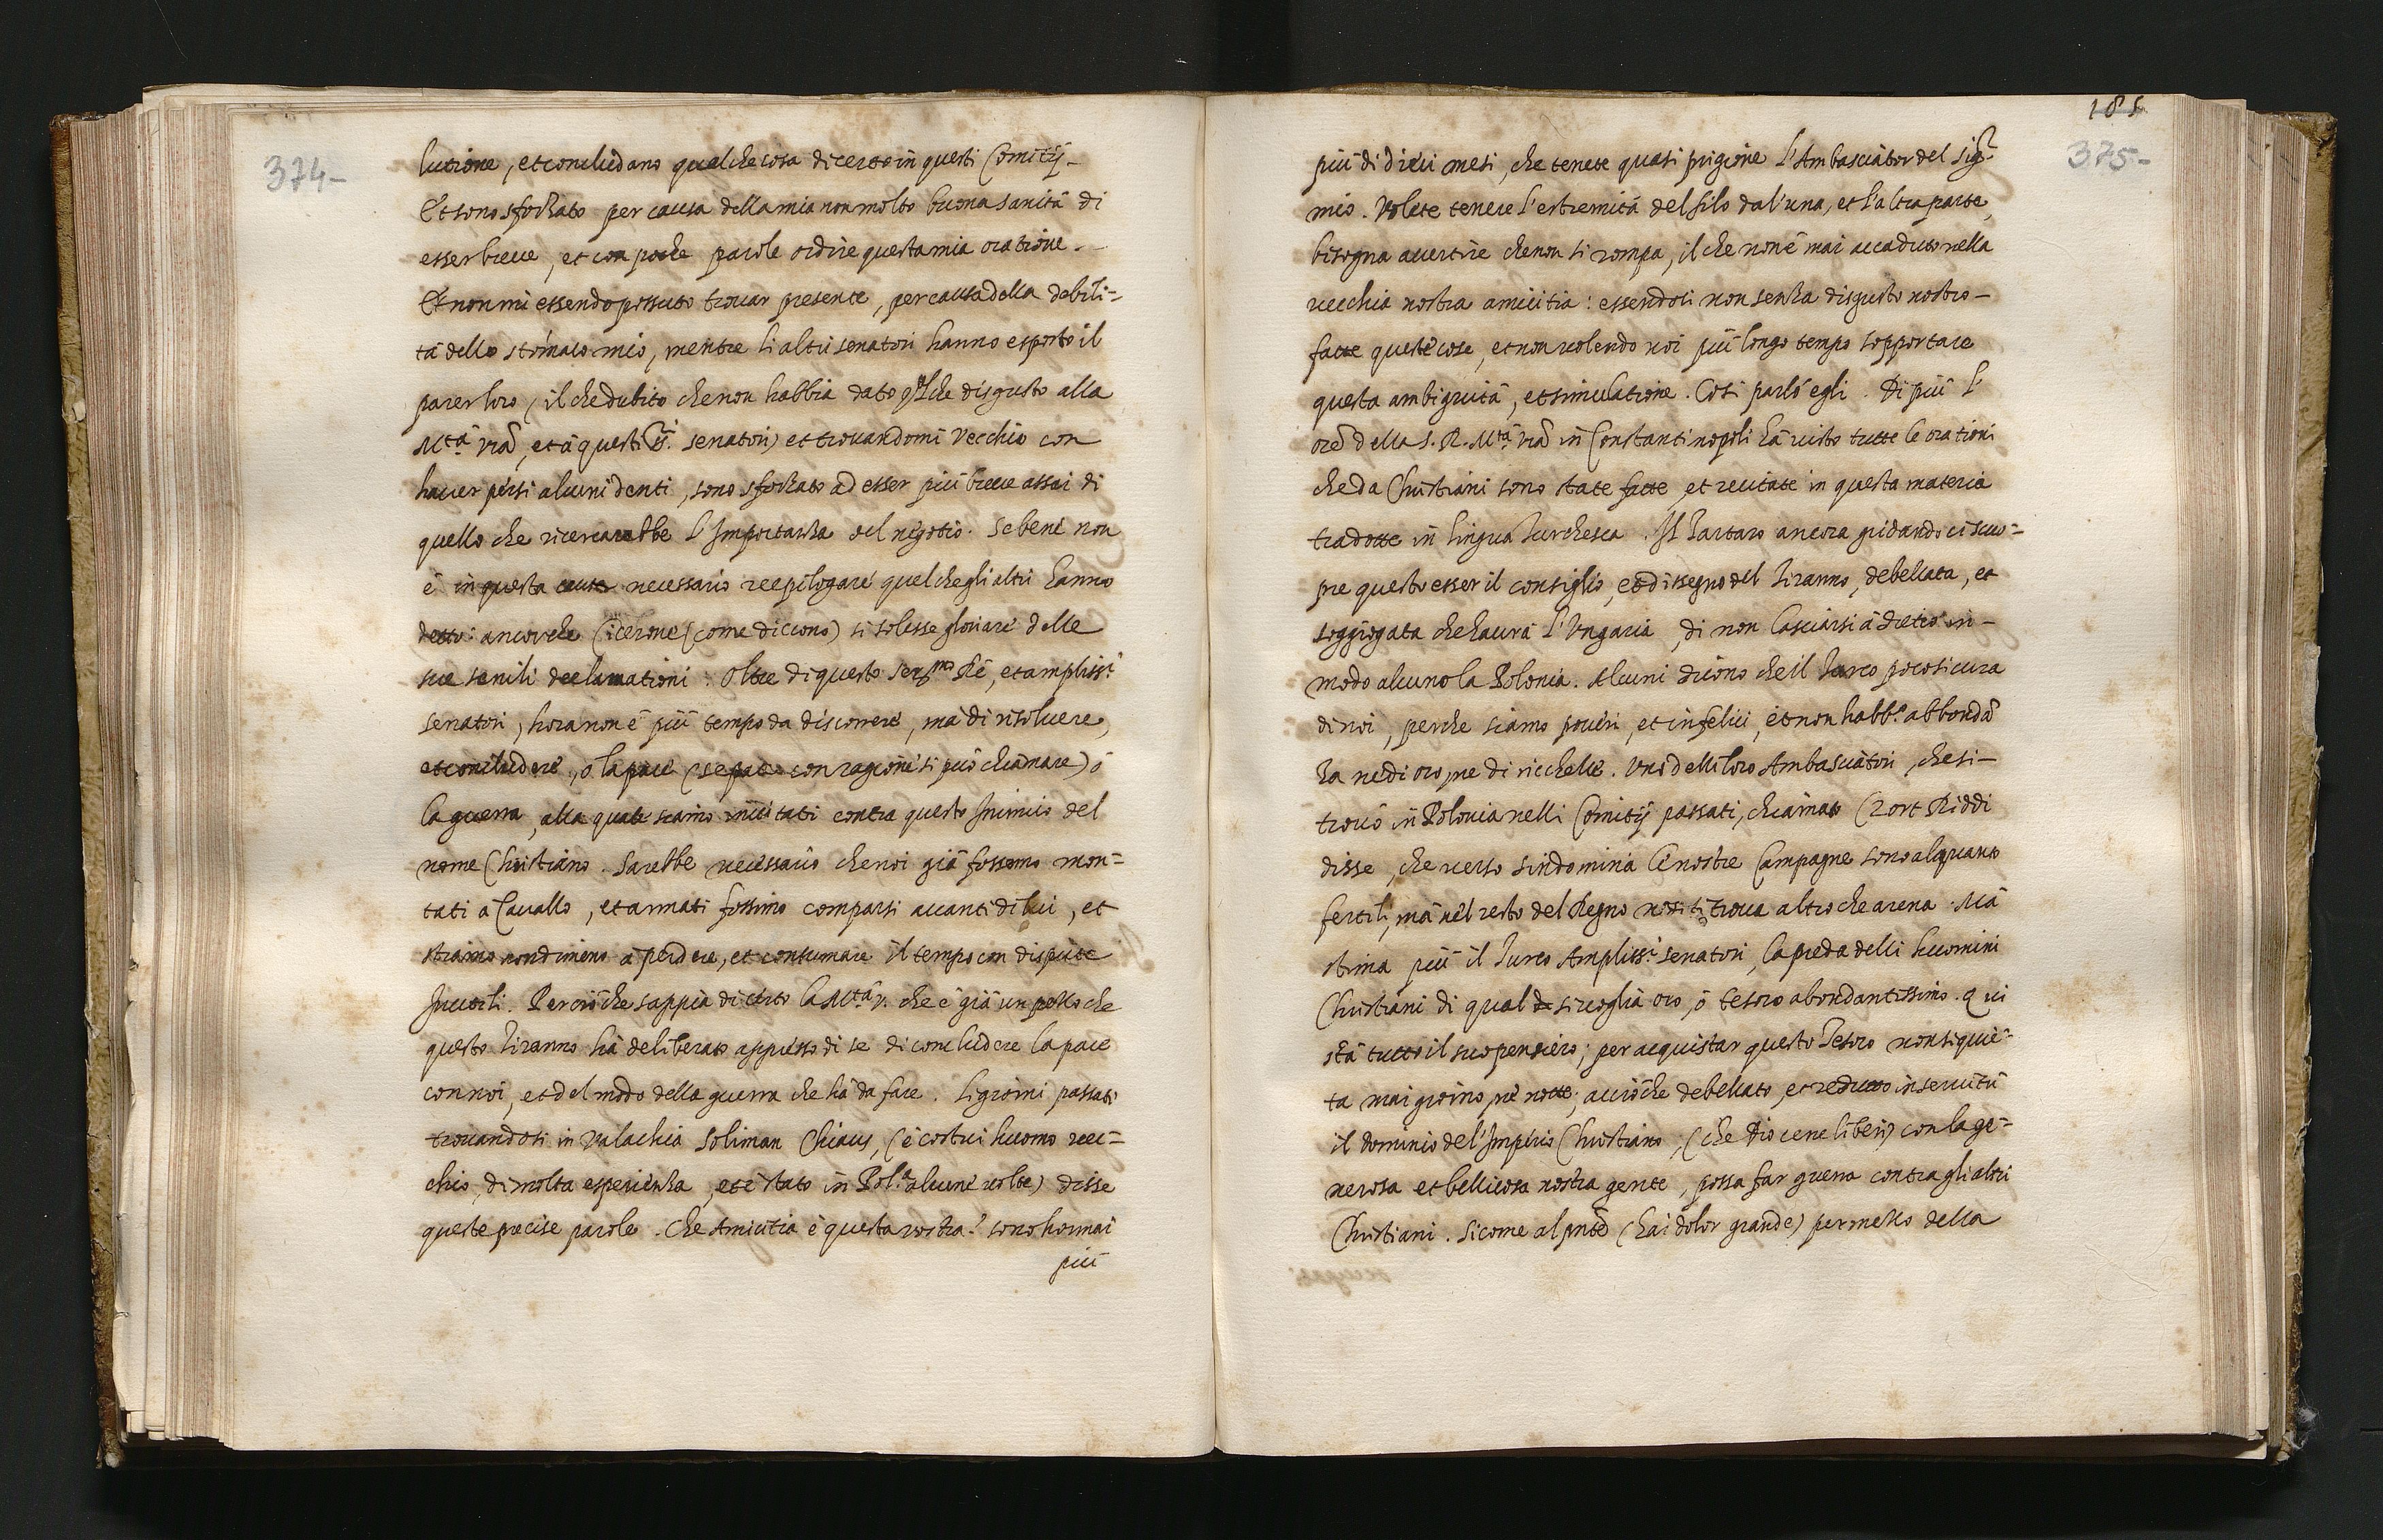 374-
lutione, et concludano qualche cosa di certo in questi Comitij-
Et sono sforzato per causa della mia non molto buona sanità di
esser breue, et con poche parole ordire questa mia oratione.-
Et non mi essendo possuto trouar presente, per causa della debili=
tà dello stomaco mio, mentre li altri senatori hanno esposto il
parer loro, il che dubito che non habbia dato qlche disgusto alla
Mtà vrã, et à questi senatori) et trouandomi Vecchio con
hauer persi alcuni denti, sono sforzato ad esser più breue assai di
quello che ricercarebbe l'Importanza del negotio. Se bene non
è in questa causa necessario reepilogare quel che gli altri hanno
detto: ancorche Cicerone (come dicono) si solesse gloriare delle
sue senili declamationi. Oltre di questo Sermo Rè, et ampliss.i
senatori, hora non è più tempo da discorrere, mà di risoluere,
et concludere, ò la pace (se pace con ragione si può chiamare) ò
la guerra, alla quale siamo inuitati contra questo Inimico del
nome Christiano. Sarebbe necessario che noi già fossemo mon=
tati à Cauallo, et armati fossimo comparsi auanti di lui, et
stiamo nondimeno à perdere, et consumare il tempo con dispute
Inutili. Perciò che sappia di certo la Mtà v. che è già un pezzo che
questo Tiranno hà deliberato appresso di se di concludere la pace
con noi, et del modo della guerra che hà da fare. Li giorni passati
trouandosi in Valachia Soliman Chiaus, (è costui huomo vec=
chio, di molta esperienza, et è stato in Pol.a alcune uolte) disse
queste precise parole. Che Amicitia è questa vostra? sono hormai
più
185
375-
più di dieci mesi, che tenete quasi prigione l'Ambasciator del Sigr
mio. Volete tenere l'estremità del filo da l'una, et l'altra parte,
bisogna auertire che non si rompa, il che non è mai accaduto nella
vecchia nostra amicitia: essendosi non senza disgusto nostro-
fatte queste cose, et non uolendo noi più longo tempo sopportare
questa ambiguità, et simulatione. Cosi parlò egli. Di più l'
orẽ della S. R. Mtà vrã in Constantinopoli hà uisto tutte le orationi
che da Christiani sono state fatte, et recitate in questa materia
tradotte in lingua Turchesca. Il Tartaro ancora gridando ci scuo=
pre questo esser il consiglio, et dissegno del Tiranno, debellata, et
soggiogata che haurà l'Vngaria, di non lasciarsi à dietro in-
modo alcuno la Polonia. Alcuni dicono che il Turco poco si cura
di noi, perche siamo poueri, et infelici, et non habb.o abbondã
za nè di oro, ne di ricchezze. Uno delli loro Ambasciatori, che si-
trouò in Polonia nelli Comitij passati, chiamato Czort Riddi
disse, che uerso Sindomiria le nostre Campagne sono alquanto
fertili, mà nel resto del Regno non si troua altro che arena. Mà
stima più il Turco Ampliss.i senatori, la preda delli huomini
Christiani di qual si uoglia oro, ò tesoro abondantissimo. Qui
stà tutto il suo pensiero; per acquistar questo Tesoro non si quie=
ta mai giorno, nè notte; acciò che debellato, et redutto in seruitù
il dominio de l'Imperio Christiano, (che Dio ce ne liberi) con la ge=
nerosa et bellicosa nostra gente, possa far guerra contra gli altri
Christiani. Sicome al pnte (hai dolor grande) per mezzo della